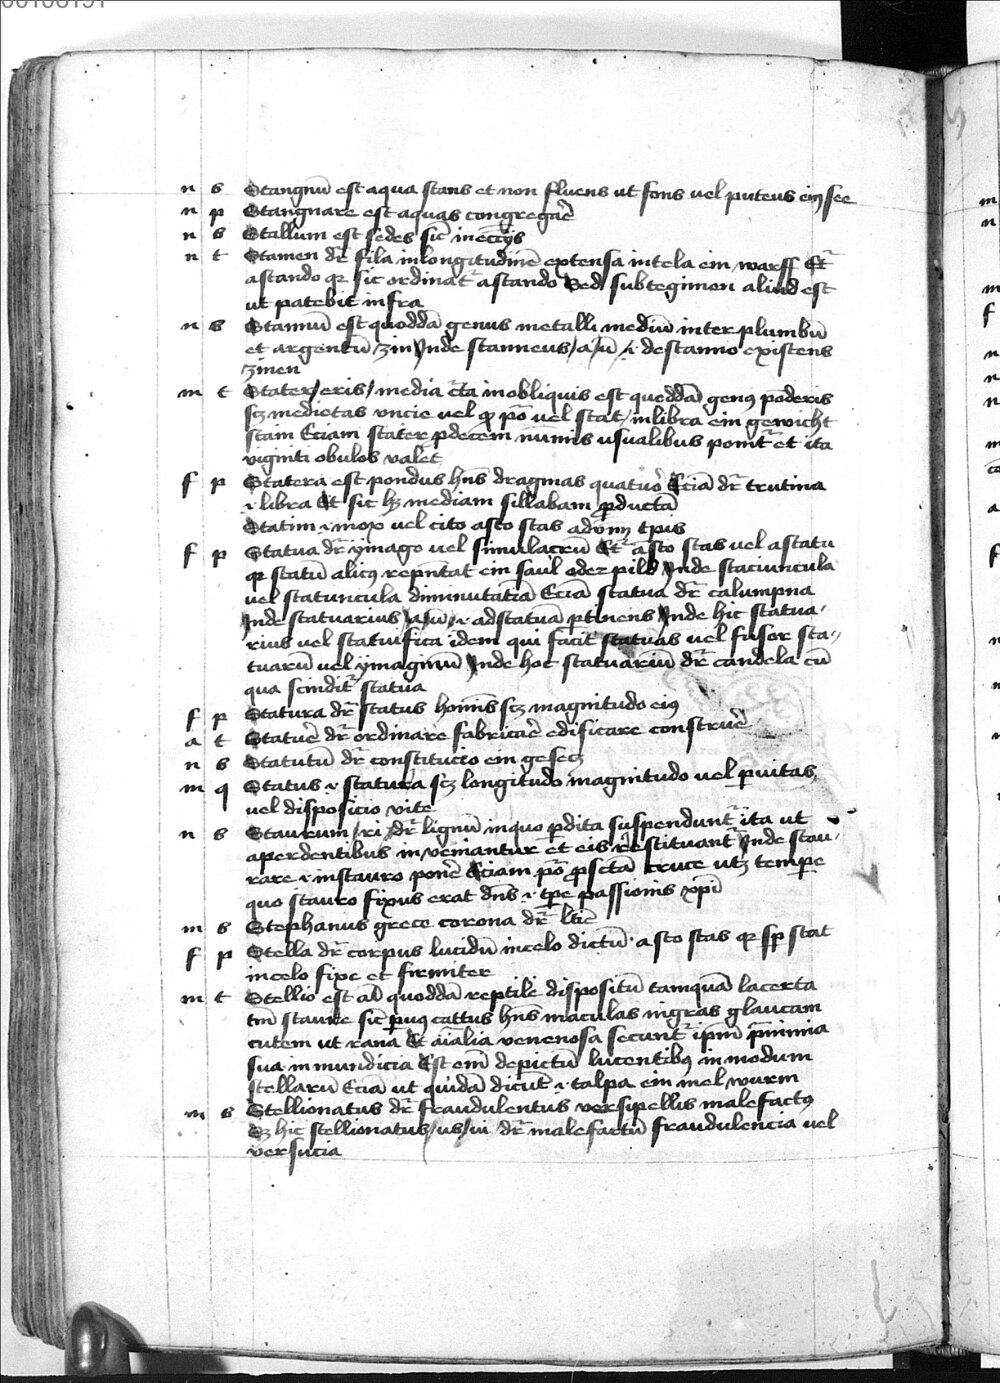 00100191
n s Stangnū est aqua stans et non fluens ut fons uel puteus ein see
n p Stangnare est aquas congregar̄e
n s Stallum est sedes sic̄ in ecc̄ijs
n t Stamen dr̄ fila in longitudinē extensa in tela ein warff Et
astando qr sic ordinat᷑ astando Sed subtegmen aliud est
ut patebit infra
n s Stannū est quoddā genus metalli mediū inter plumbū
et argentū zin Inde stanneus/a/ū .i. de stanno existens
zinen
m t Stater/eris/media cōta in obliquis est quoddā genꝰ pōderis
sz medietas vncie uel ꝓ pōe uel stat/ in libra ein gewicht
stain Eciam stater ꝑ decem nūmis usualibus ponit᷑ et ita
viginti obulos valet
f p Statera est pondus hn̄s dragmas quatuor Eciā dr̄ trutina
.i. libra Et sic hz mediam sillabam ꝓductā
Statim .i. mox uel cito asto stas adu̅m̅ tp̄us
f p Statua dr̄ ymago uel simulacrū Et᷑ a sto stas uel a statu
qr statū alicꝰ rep̄ntat ein saul oder pild Inde staciuncula
uel statuncula diminutatiā Eciā statua dr̄ calumpna
Inde statuarius/a/ū/.i. ad statuā ꝑtinens Inde hic statua-
rius uel statuifica idem qui facit statuas uel fusor sta-
tuarū uel ymaginū Inde hoc statuariū dr̄ candela cū
qua scindit᷑ statua
f p Statura dr̄ status homīs sz magnitudo eiꝰ
a t Statue᷑ dr̄ ordinare fabricar̄e edificare construer̄e
n s Statutū dr̄ constitucio ein gesecz
m q Status .i. statura sz longitudo magnitudo uel ꝑuitas
uel disposicio vite
n s Staurum/ri/dr̄ lignū in quo ꝑdita suspendunt᷑ ita ut
a perdentibus inveniantur et eis restituant᷑ Inde stau-
rare .i. instauro ponē Eciam pō ꝓ sctā cruce utz tempe
quo stauro fixus erat dn̄s .i. tp̄e passionis xp̄i
m s Stephanus grece corona dr̄ ltīe
f p Stella dr̄ corpus lucidū in celo dictū a sto stas qr sp̄ stat
in celo fixe et firmiter
m t Stellio est aīal quoddā reptile dispositū tamquā lacerta
tm̄ staure sic̄ ꝑuꝰ cattus hn̄s maculas nigras glaucam
cutem ut rana Et aīalia venenosa secunt᷑ ip̄m p̄ nimia
sua inmundicia Est em̄ depictū lucentibꝰ in modum
stellarū Eciā ut quidā dicūt .i. talpa ein mel wurm
m s Stellionatus dr̄ fraudulentus versipellis malefactꝰ
Sz hic stellionatus/us/ui dr̄ malefactū fraudulencia uel
versucia